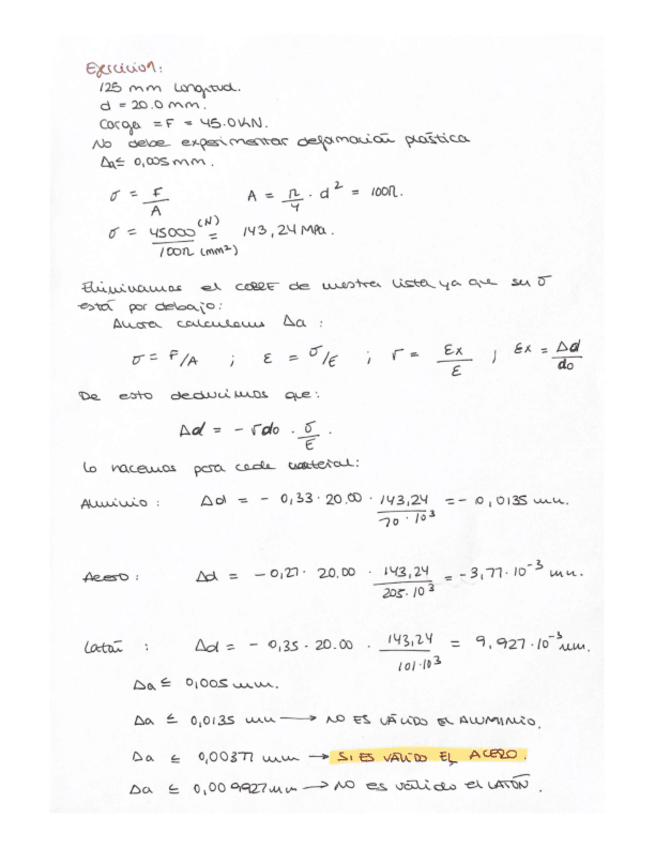 Ejercicio 1:
125 mm longitud.
d = 20.0 mm.
Carga = F = 45.0 KN.
No debe experimentar deformación plástica
Δa ≤ 0,005 mm.
σ = F/A    A = π/4 · d² = 100π.
σ = 45000 (N) / 100π (mm²) = 143,24 MPa.
Eliminamos el COBRE de nuestra lista ya que su σ
está por debajo:
Ahora calculamos Δa :
σ = F/A ; ε = σ/E ; r = εx/ε ; εx = Δd/do
De esto deducimos que:
Δd = - rdo · σ/E .
Lo hacemos para cada material:
Aluminio : Δd = - 0,33 · 20.00 · 143,24 / 70 · 10³ = - 0,0135 mm.
Acero : Δd = - 0,27 · 20.00 · 143,24 / 205 · 10³ = -3,77 · 10⁻³ mm.
Latón : Δd = - 0,35 · 20.00 · 143,24 / 101 · 10³ = 9,927 · 10⁻³ mm.
Δa ≤ 0,005 mm.
Δa ≤ 0,0135 mm → NO ES VÁLIDO EL ALUMINIO.
Δa ≤ 0,00377 mm → SI ES VÁLIDO EL ACERO.
Δa ≤ 0,009927 mm → NO es válido el LATÓN.